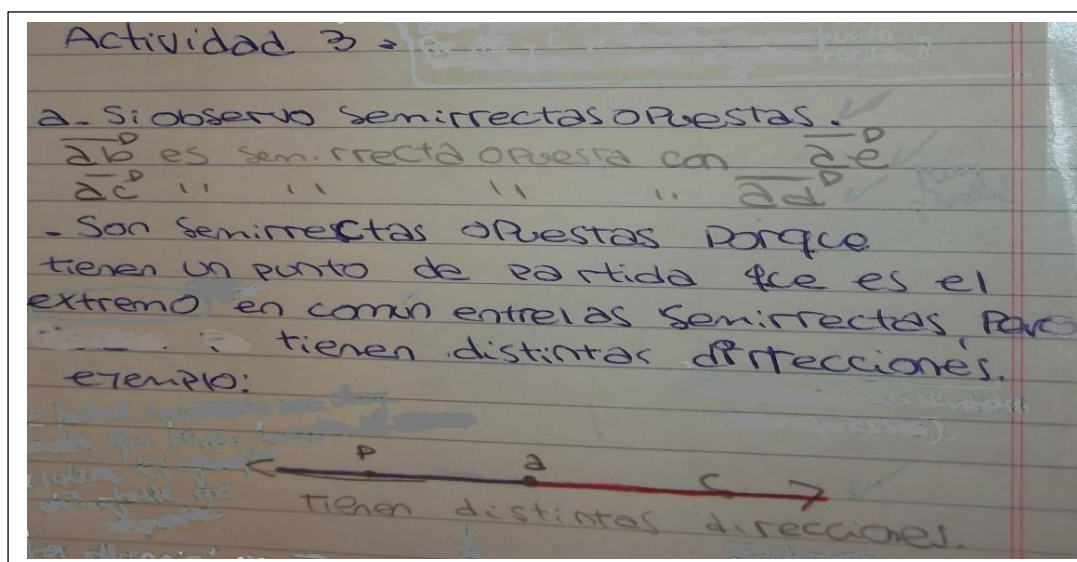 Actividad 3 :
a- Si observo semirrectas opuestas.
ab es semirrecta opuesta con ae
ac '' '' '' '' ad
- Son semirrectas opuestas porque
tienen un punto de partida que es el
extremo en común entre las semirrectas, pero
tienen distintas dirrecciones.
ejemplo:
P a c
Tienen distintas direcciones.